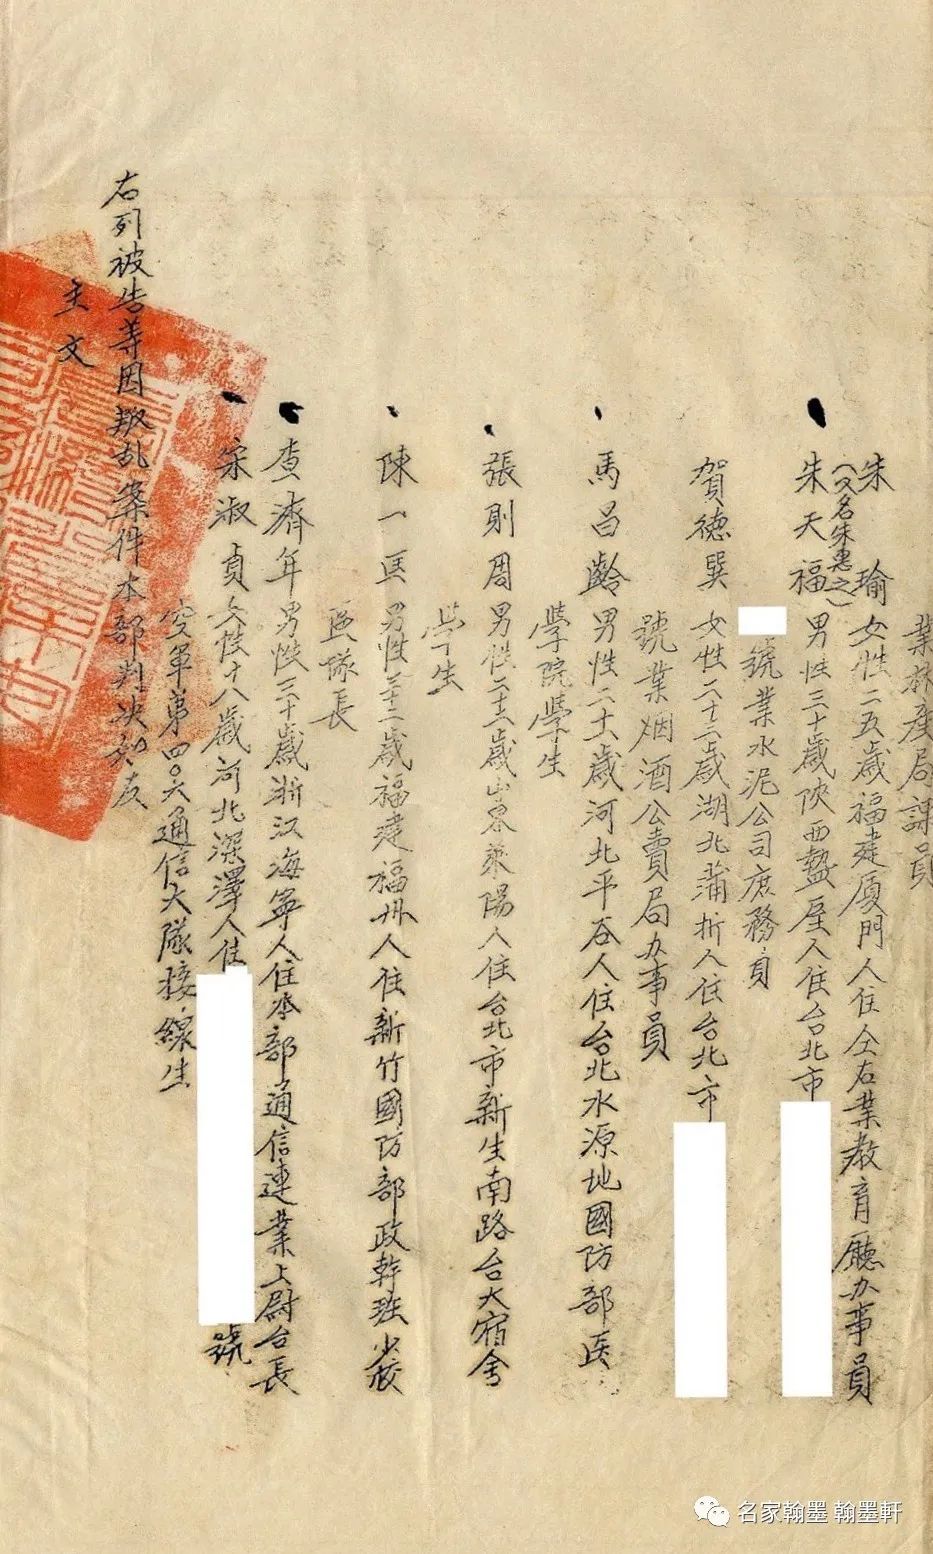 業林產局課員
朱瑜女性二五歲福建厦門人住仝右業教育廳办事員
（又名朱惠之）
朱天福男性三十歲陝西盩厔人住台北市
號業水泥公司庶務員
賀德巽女性二十三歲湖北蒲圻人住台北市
號業烟酒公賣局办事員
馬昌齡男性二十歲河北平谷人住台北水源地國防部医
學院學生
張則周男性二十三歲山东萊陽人住台北市新生南路台大宿舍
學生
陳一匡男性三十二歲福建福州人住新竹國防部政幹班少校
區隊長
查濟年男性三十歲浙江海寧人住本部通信連業上尉台長
宋淑貞女性十八歲河北深澤人住 號
空軍第四〇六通信大隊接線生
右列被告等因叛乱案件本部判决如左
主文
名家翰墨 翰墨軒